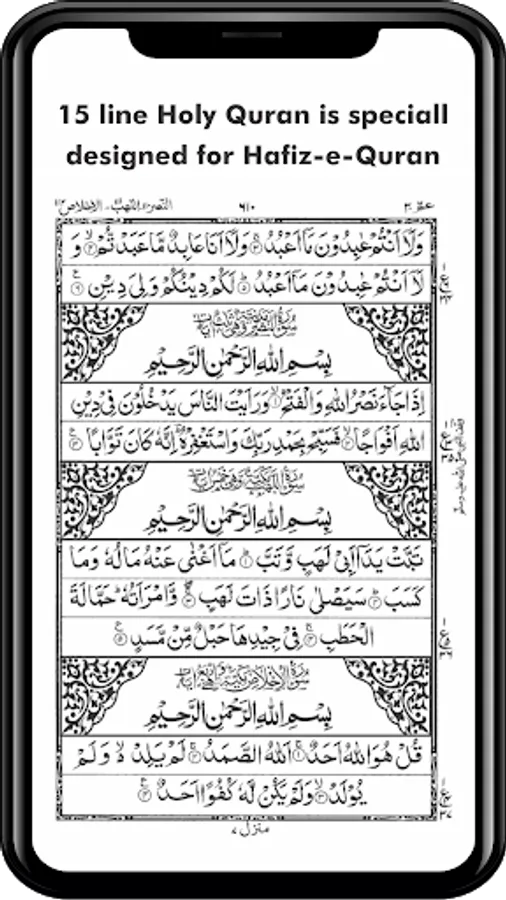 15 line Holy Quran is speciall
designed for Hafiz-e-Quran
عم ٣٠
٦١٠
النصر۔ اللهب۔ الاخلاص
وَلَآ اَنْتُمْ عٰبِدُوْنَ مَآ اَعْبُدُ ۚ وَلَآ اَنَا عَابِدٌ مَّا عَبَدْتُّمْ ۙ وَ
لَآ اَنْتُمْ عٰبِدُوْنَ مَآ اَعْبُدُ ۗ لَكُمْ دِيْنُكُمْ وَلِيَ دِيْنِ
بِسْمِ اللهِ الرَّحْمٰنِ الرَّحِيْمِ
اِذَا جَآءَ نَصْرُ اللهِ وَالْفَتْحُ ۙ وَرَاَيْتَ النَّاسَ يَدْخُلُوْنَ فِيْ دِيْنِ
اللهِ اَفْوَاجًا ۙ فَسَبِّحْ بِحَمْدِ رَبِّكَ وَاسْتَغْفِرْهُ ؔ اِنَّهٗ كَانَ تَوَّابًا
بِسْمِ اللهِ الرَّحْمٰنِ الرَّحِيْمِ
تَبَّتْ يَدَآ اَبِيْ لَهَبٍ وَّتَبَّ ۗ مَآ اَغْنٰى عَنْهُ مَالُهٗ وَمَا
كَسَبَ ۗ سَيَصْلٰى نَارًا ذَاتَ لَهَبٍ ۚ وَّامْرَاَتُهٗ ۗ حَمَّالَةَ
الْحَطَبِ ۚ فِيْ جِيْدِهَا حَبْلٌ مِّنْ مَّسَدٍ
بِسْمِ اللهِ الرَّحْمٰنِ الرَّحِيْمِ
قُلْ هُوَ اللهُ اَحَدٌ ۚ اَللهُ الصَّمَدُ ۚ لَمْ يَلِدْ ۙ وَلَمْ
يُوْلَدْ ۙ وَلَمْ يَكُنْ لَّهٗ كُفُوًا اَحَدٌ
منزل ٧